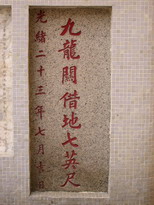 九龍關借地七英尺
光緒二十三年七月立